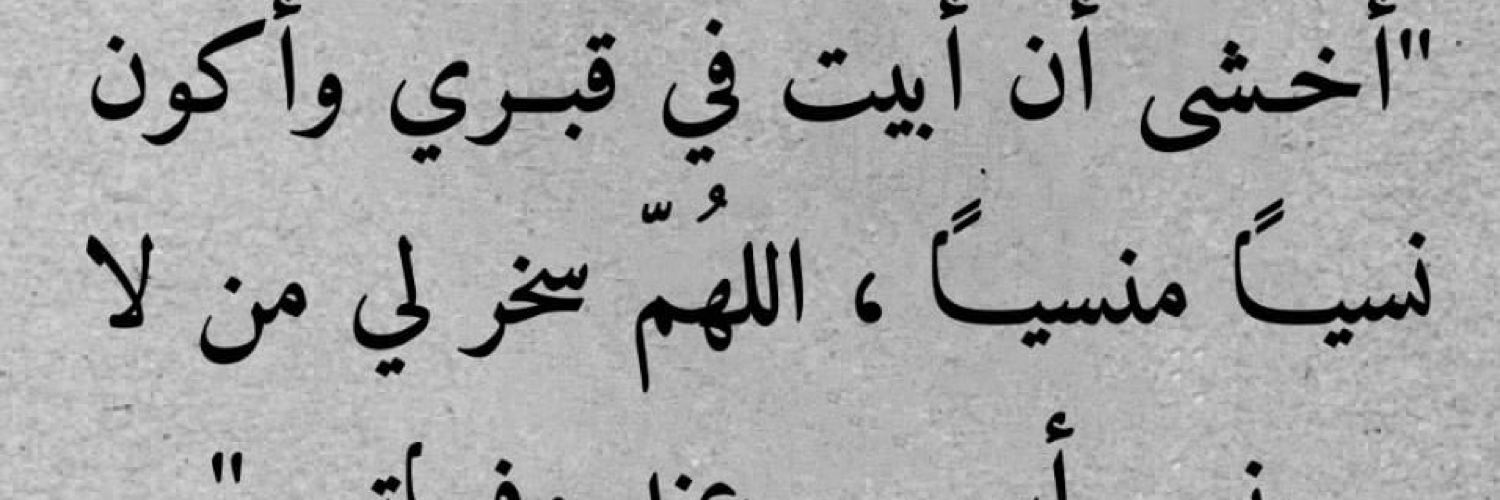 "أخشى أن أبيت في قبري وأكون
نسياً منسياً ، اللهُمّ سخر لي من لا